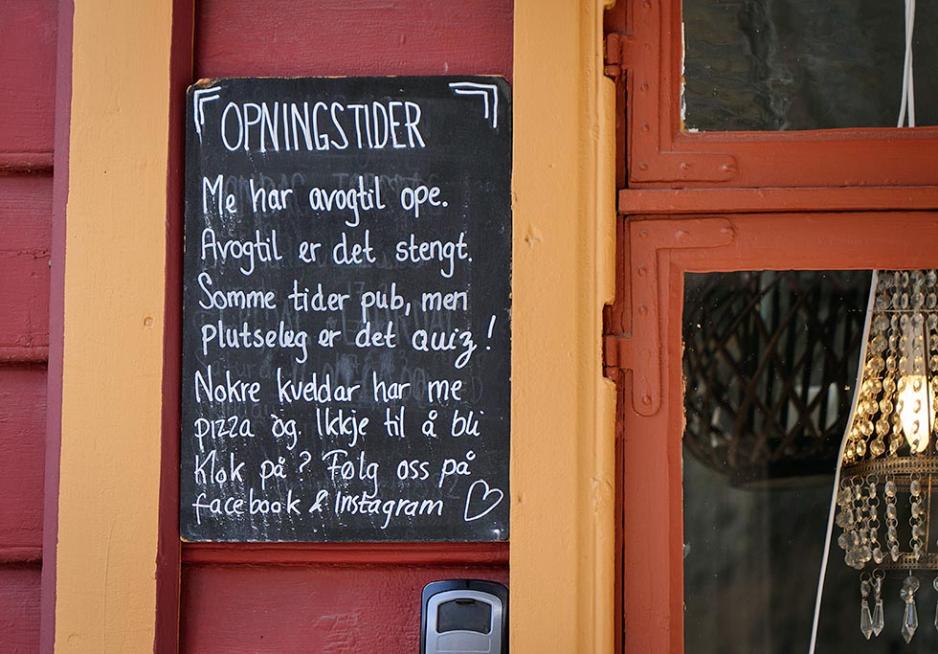 OPNINGSTIDER
Me har avogtil ope.
Avogtil er det stengt.
Somme tider pub, men
plutseleg er det quiz!
Nokre kveldar har me
pizza òg. Ikkje til å bli
Klok på? Følg oss på
facebook & Instagram ♡